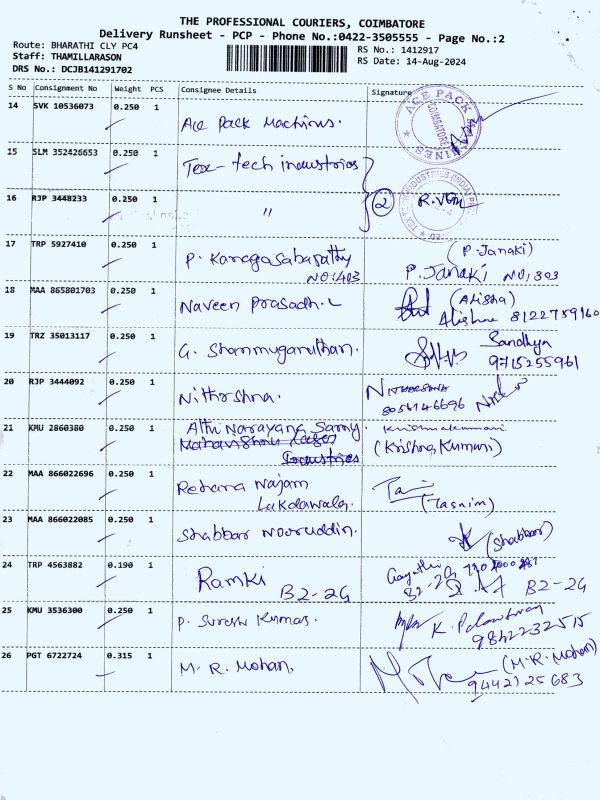 THE PROFESSIONAL COURIERS, COIMBATORE
Delivery Runsheet - PCP - Phone No.:0422-3505555 - Page No.:2
Route: BHARATHI CLY PC4
RS No.: 1412917
Staff: THAMILLARASON
RS Date: 14-Aug-2024
DRS No.: DCJB141291702
S No Consignment No Weight PCS Consignee Details Signature
14 SVK 10536073 0.250 1
Ace Pack Machines.
ACE PACK MACHINES COIMBATORE
15 SLM 352426653 0.250 1
Tex-tech industries
16 RJP 3448233 0.250 1
" 2 R.
17 TRP 5927410 0.250 1
P. Kanagasabapathy
NO:403
(P. Janaki)
P. Janaki NO, 303
18 MAA 865801703 0.250 1
Naveen Prasadh. L
(Alisha)
Alisha 8122759160
19 TRZ 35013117 0.250 1
G. Shanmuganathan.
Sandhya
9715255961
20 RJP 3444092 0.250 1
Nitharshna.
NITHARSHNA
9056146696
21 KMU 2860380 0.250 1
Athi Narayana Samy.
Mahavishnu Laser
Industries
Krishnakumari
(Krishna Kumari)
22 MAA 866022696 0.250 1
Rehana Najam
Lakdawala.
(Tasnim)
23 MAA 866022085 0.250 1
Shabbar Nooruddin.
(Shabbar)
24 TRP 4563882 0.190 1
Ramki B2-2G
Gayathri
B2-2G B2-2G
25 KMU 3536300 0.250 1
P. Suresh Kumar.
K.
9842232515
26 PGT 6722724 0.315 1
M. R. Mohan.
(M.R. Mohan)
9442125683